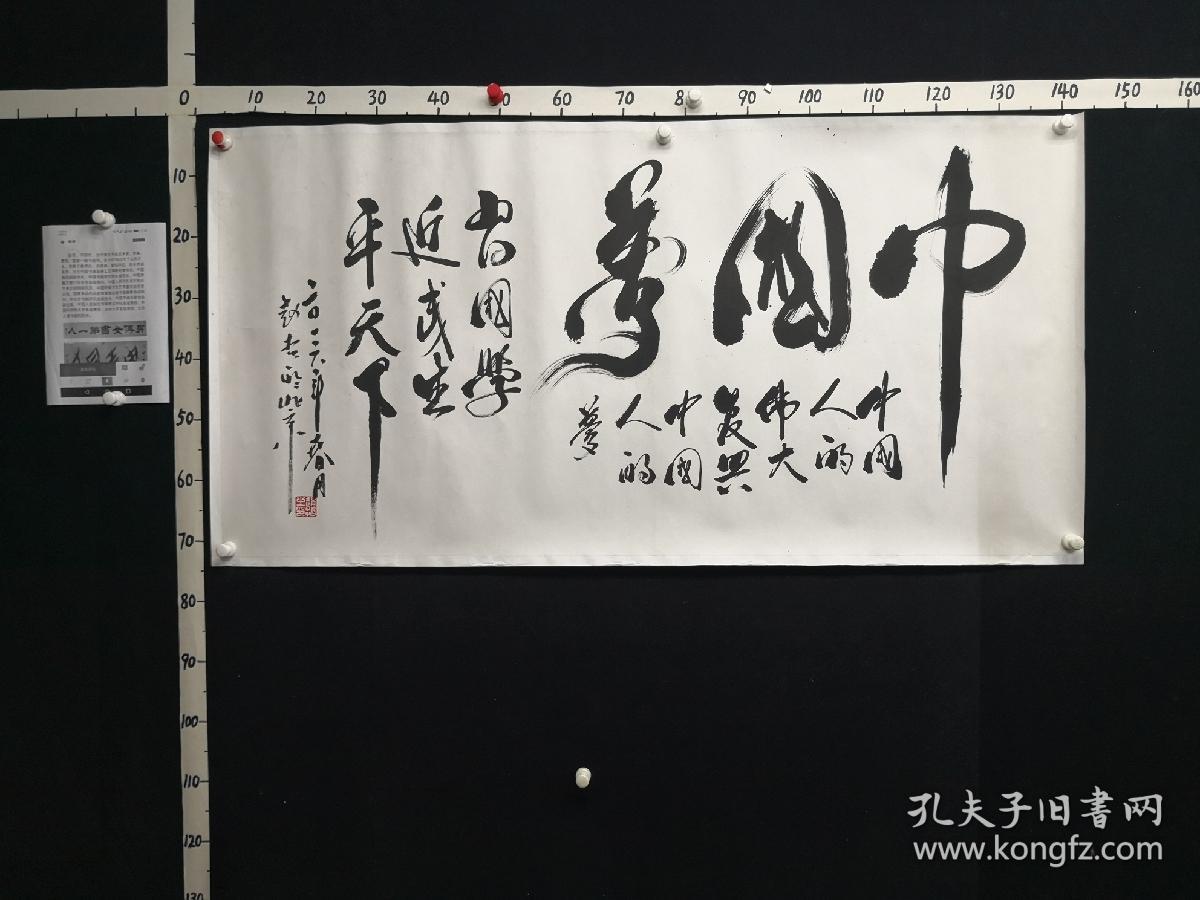 0 10 20 30 40 50 60 70 80 90 100 110 120 130 140 150 160
10
20
30
40
50
60
70
80
90
100
110
120
130
中國夢
中國
人的
偉大
复興
中國
人的
夢
習國學
近民生
平天下
二〇一六年春月
於北京
孔夫子旧書网
www.kongfz.com